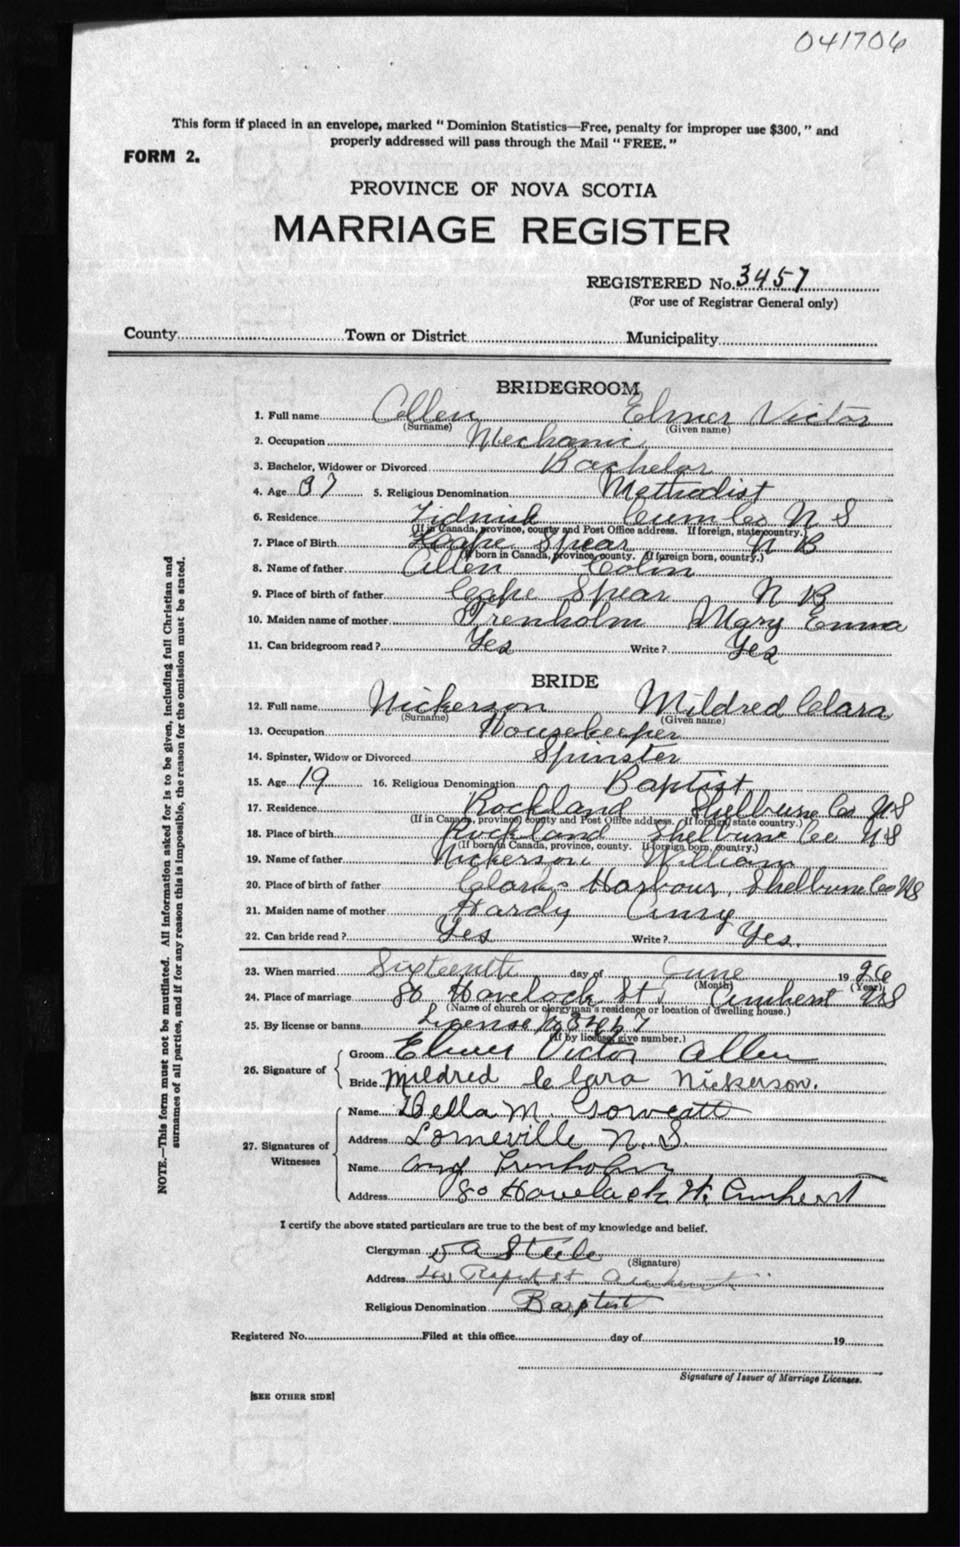 041706
This form if placed in an envelope, marked " Dominion Statistics—Free, penalty for improper use $300, " and
properly addressed will pass through the Mail " FREE. "
FORM 2.
PROVINCE OF NOVA SCOTIA
MARRIAGE REGISTER
REGISTERED No. 3457
(For use of Registrar General only)
County Town or District Municipality
BRIDEGROOM
1. Full name Allen Elmer Victor
(Surname) (Given name)
2. Occupation Mechanic
3. Bachelor, Widower or Divorced Bachelor
4. Age 37 5. Religious Denomination Methodist
6. Residence Tidnish Cum Co N S
(If in Canada, province, county and Post Office address. If foreign, state country.)
7. Place of Birth Cape Spear N B
(If born in Canada, province, county. If foreign born, country.)
8. Name of father Allen Colin
9. Place of birth of father Cape Spear N B
10. Maiden name of mother Trenholm Mary Emma
11. Can bridegroom read ? Yes Write ? Yes
BRIDE
12. Full name Nickerson Mildred Clara
(Surname) (Given name)
13. Occupation Housekeeper
14. Spinster, Widow or Divorced Spinster
15. Age 19 16. Religious Denomination Baptist
17. Residence Rockland Shelburne Co N S
(If in Canada, province, county and Post Office address. If foreign, state country.)
18. Place of birth Rockland Shelburne Co N S
(If born in Canada, province, county. If foreign born, country.)
19. Name of father Nickerson William
20. Place of birth of father Clarks Harbour, Shelburne Co NS
21. Maiden name of mother Hardy Anny
22. Can bride read ? Yes Write ? Yes.
23. When married Sixteenth day of June 19 26
(Month) (Year)
24. Place of marriage 80 Havelock St, Amherst NS
(Name of church or clergyman's residence or location of dwelling house.)
25. By license or banns License No 3457
(If by license, give number.)
26. Signature of Groom Elmer Victor Allen
Bride Mildred Clara Nickerson.
27. Signatures of Witnesses Name Della M.
Address Lorneville N. S.
Name Trenholm
Address 80 Havelock St. Amherst
I certify the above stated particulars are true to the best of my knowledge and belief.
Clergyman Steele
(Signature)
Address Baptist
Religious Denomination Baptist
Registered No. Filed at this office day of 19
Signature of Issuer of Marriage Licenses.
[SEE OTHER SIDE]
NOTE.—This form must not be mutilated. All information asked for is to be given, including full Christian and
surnames of all parties, and if for any reason this is impossible, the reason for the omission must be stated.